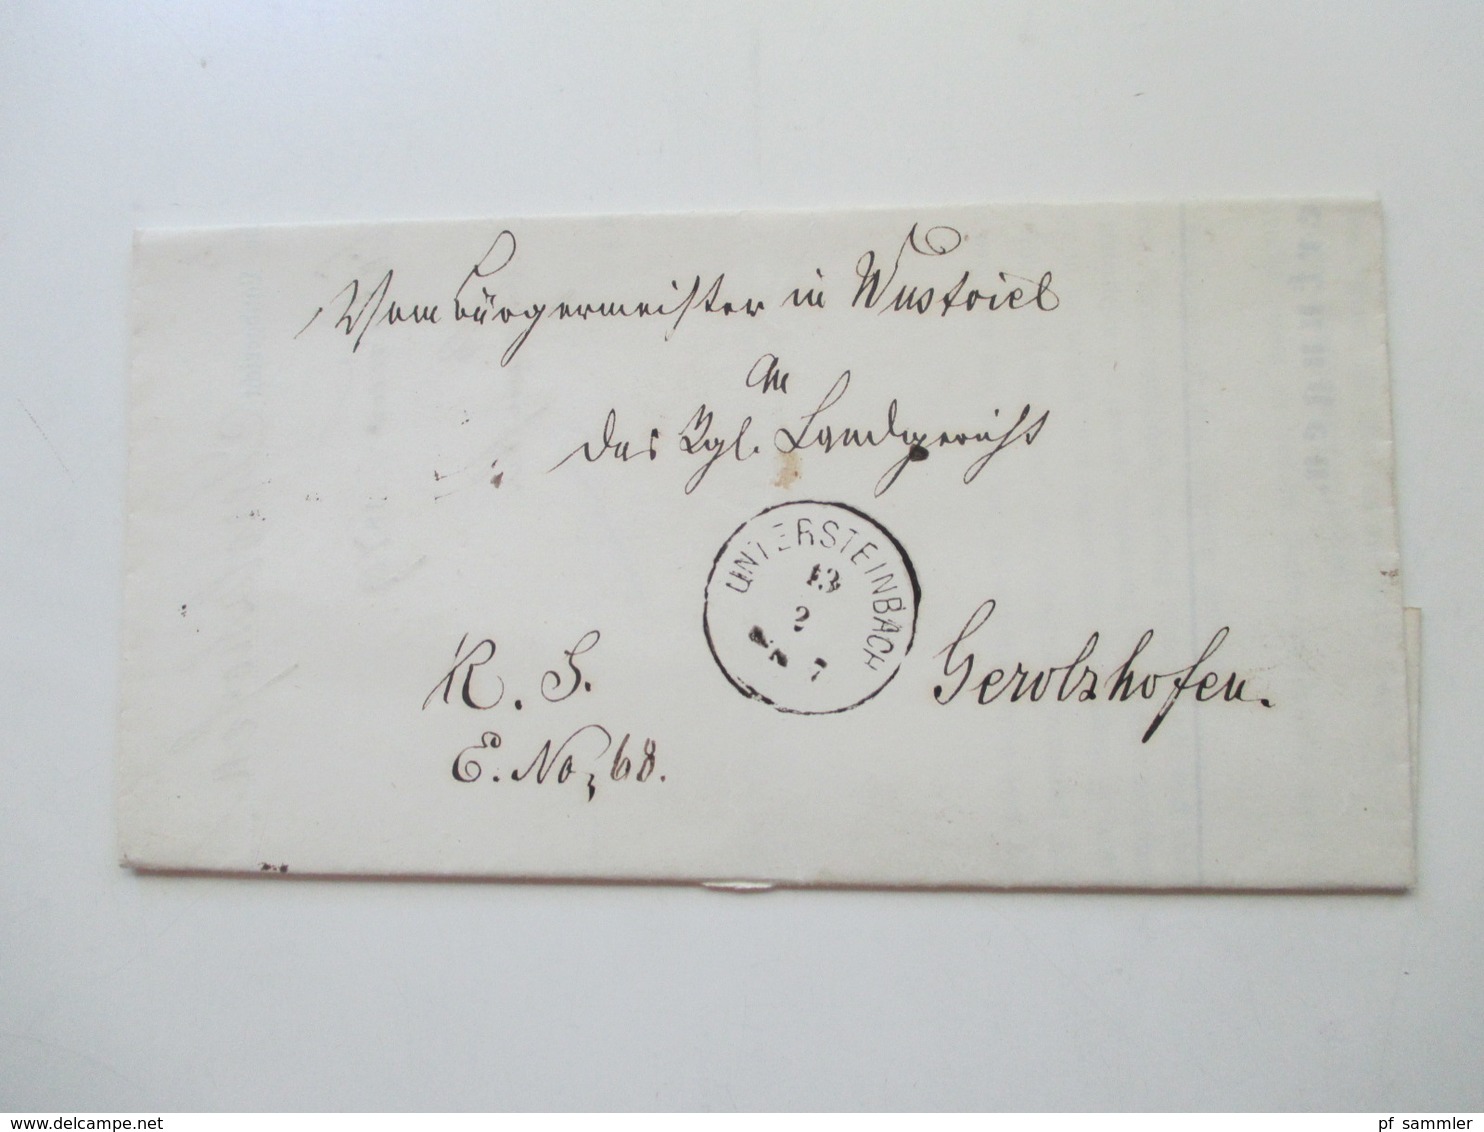 Vom Bürgermeister in Wustviel
An
das Kgl. Landgericht
UNTERSTEINBACH
13
2
7
R. S.
Gerolzhofen.
E. No, 68.
pf sammler